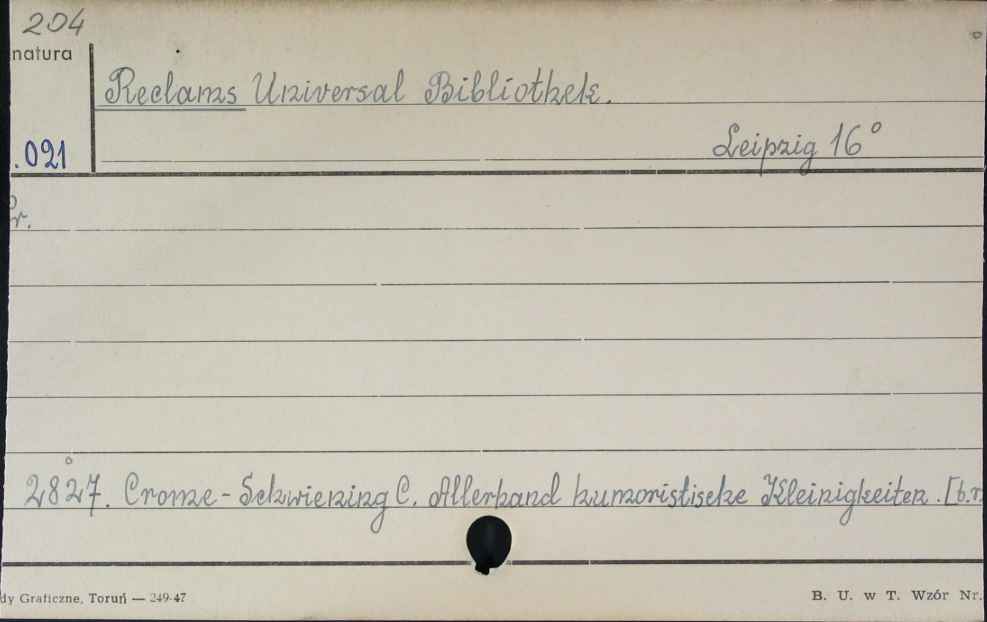 204
natura
Reclams Universal Bibliothek.
.021
Leipzig 16°
r.
2827. Crome-Schwiening C. Allerhand humoristische Kleinigkeiten. [b.r
dy Graficzne, Toruń — 249-47
B. U. w T. Wzór Nr.